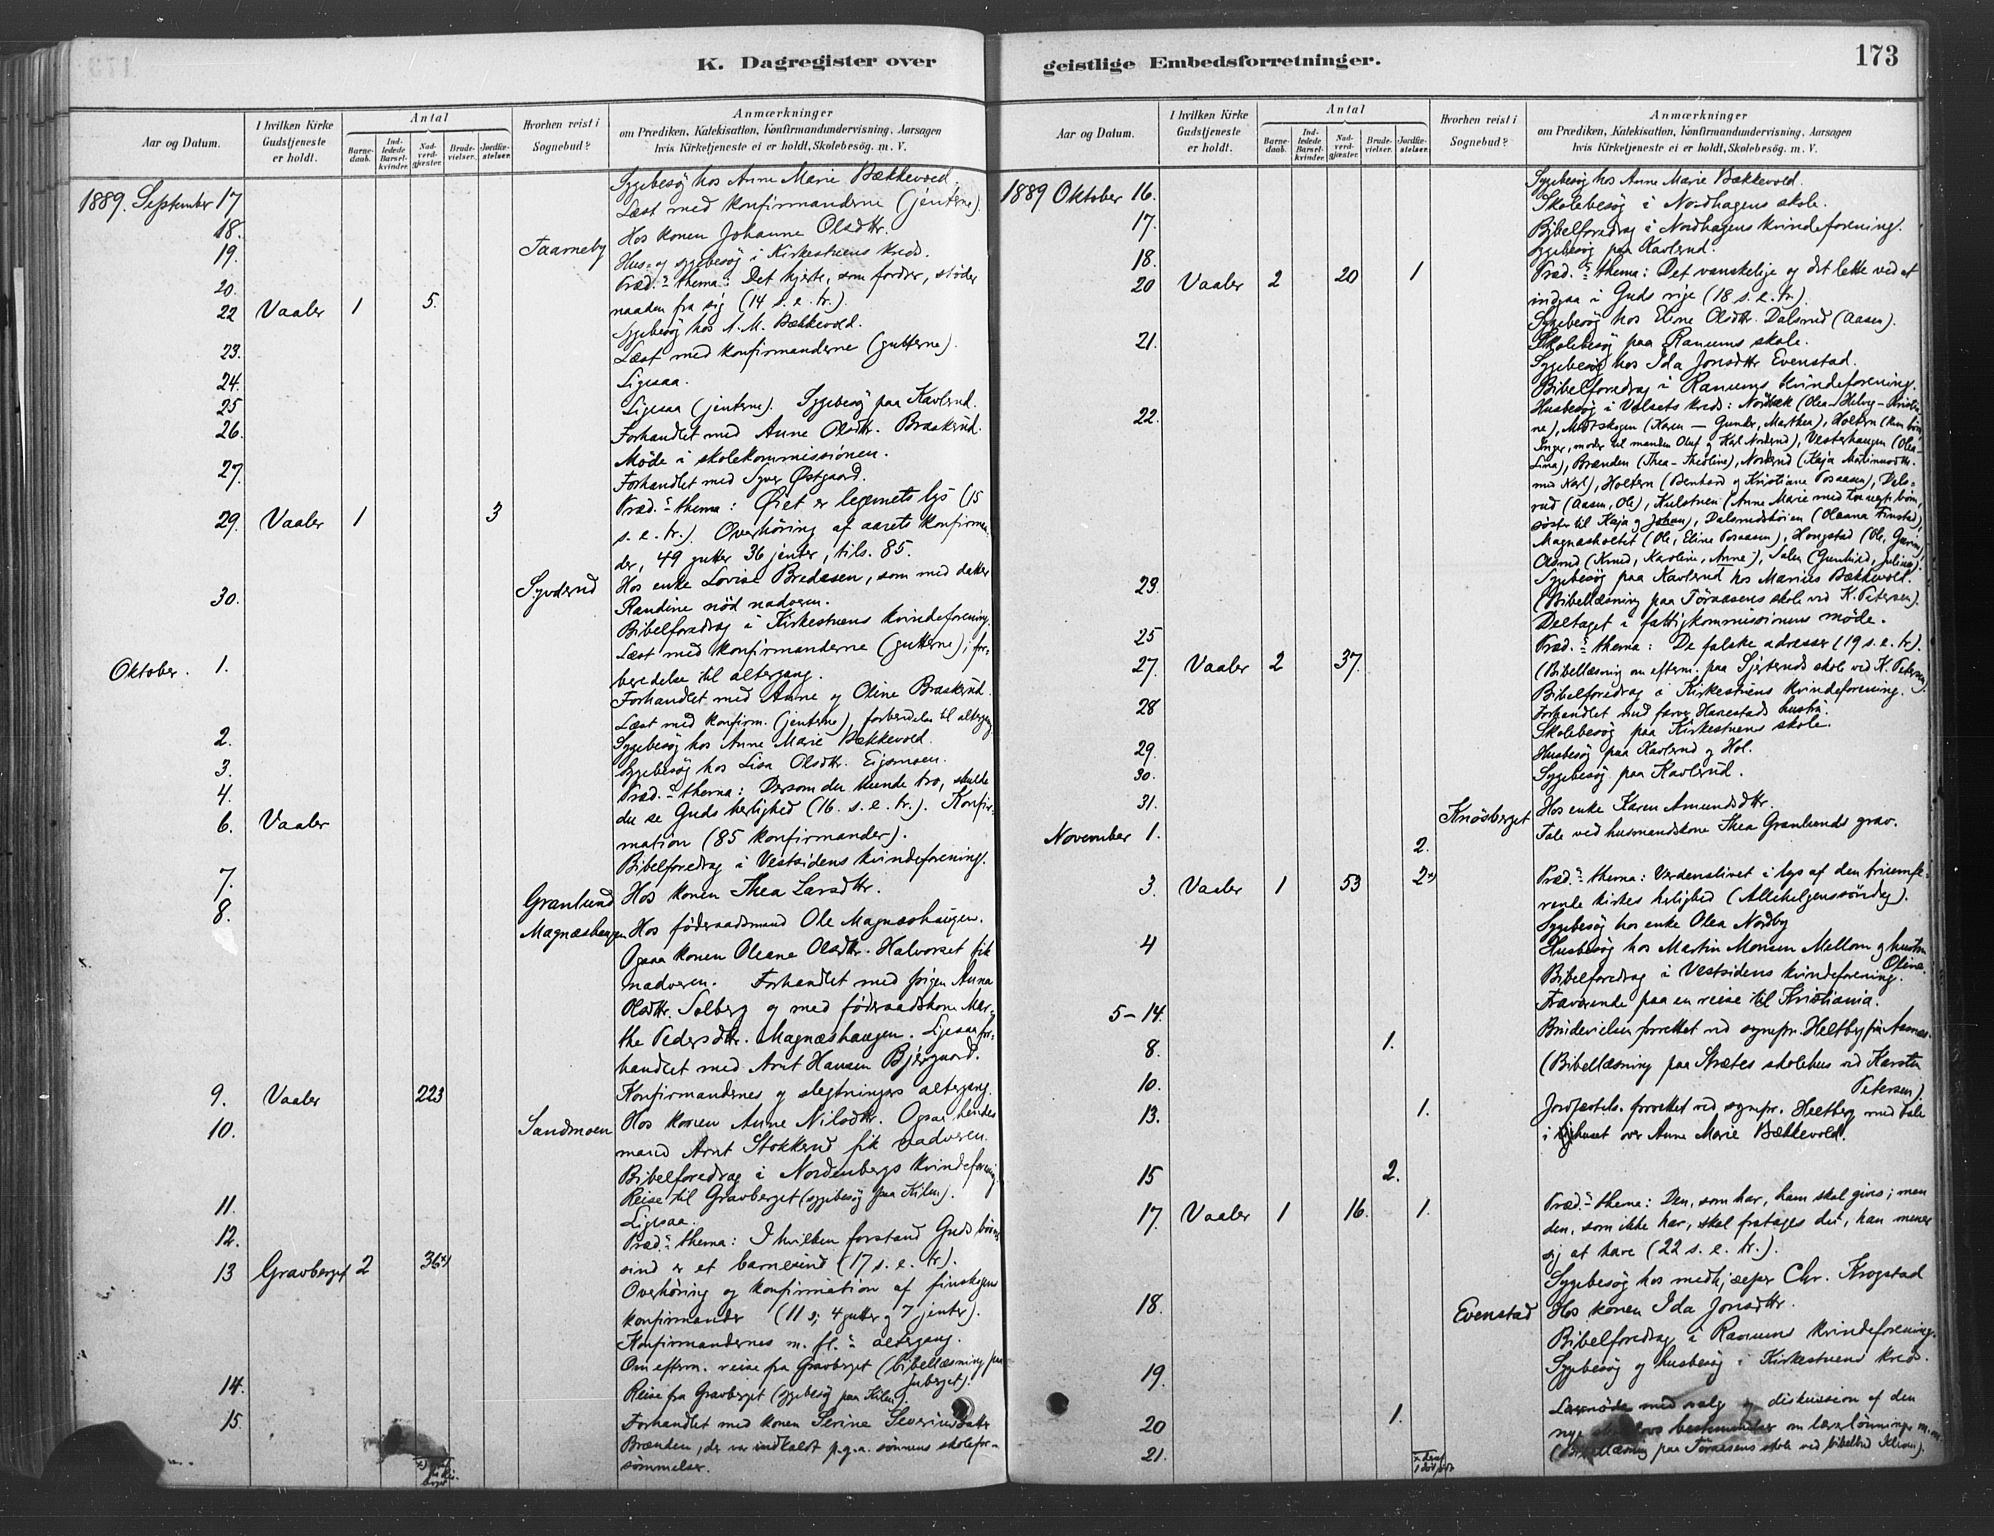 K. Dagregister over
Aar og Datum.
I hvilken Kirke Gudstjeneste er holdt.
Antal
Barnedaab.
Indledede Barselkvinder.
Nadverdgjæster.
Brudevielser.
Jordfæstelser.
Hvorhen reist i Sognebud?
Anmærkninger
om Prædiken, Katekisation, Konfirmandundervisning, Aarsagen
hvis Kirketjeneste ei er holdt, Skolebesøg. m. V.
Sygebesøg hos Anne Marie Bækkevold.
1889. September 17 Læst med konfirmanderne (jenterne).
18. Taarneby Hos konen Johanne Olsdtr.
19. Hus- og sygebesøg i Kirkestuens kreds.
20. Præd.s thema: Det hjerte, som fordrer, støder
22 Vaaler 1 5. naaden fra sig (14 s. e. tr.).
Sygebesøg hos A. M. Bækkevold.
23. Læst med konfirmanderne (gutterne).
24. Ligesaa.
25 Ligesaa (jenterne). Sygebesøg paa Kavlerud.
26. Forhandlet med Anne Olsdtr. Braskerud.
Møde i skolekommissionen.
27. Forhandlet med Syver Østgaard.
29. Vaaler 1 3 Præd.s thema: Øiet er legemets lys (15
s. e. tr.). Overhøring af aarets konfirman
der, 49 gutter 36 jenter, tils. 85.
30. Syverud Hos enke Lovise Bredesen, som med datter
Randine nød nadveren.
Bibelforedrag i Kirkestuens kvindeforening.
Oktober. 1. Læst med konfirmanderne (gutterne); for-
beredelse til altergang.
Forhandlet med Anne og Oline Braskerud.
Læst med konfirm. (jenterne), forberedelse til altergang
2. Sygebesøg hos Anne Marie Bækkevold.
3. Sygebesøg hos Lisa Olsdtr.
4. Præd.s thema: Dersom du kunde tro, skulde
6. Vaaler du se Guds herlighed (16. s. e. tr.). Konfir-
mation (85 konfirmander).
7. Bibelforedrag i Vestsidens kvindeforening.
8. Grænlund Hos konen Thea Larsdtr.
Magnæshaugen Hos føderaadsmand Ole Magnæshaugen.
Ogsaa konen Oleane Olsdtr. Halvorset fik
nadveren. Forhandlet med pigen Anna
Olsdtr. Solberg og med føderaadskone Mar-
the Pedersdtr. Magnæshaugen. Ligesaa for-
handlet med Arnt Hansen Bjørgaard.
9. Vaaler 223 Konfirmandernes og slegtningers altergang.
10. Sandmoen Hos konen Anne Nilsdtr. Ogsaa hendes
mand Arnt Stokkerud fik nadveren.
Bibelforedrag i Nordenbergs kvindeforening.
11. Reise til Gravberget (sygebesøg paa Kilen).
12. Ligesaa.
13 Gravberget 2 36x) Præd.s thema: I hvilken forstand Guds børns
sind er et barnesind (17 s. e. tr.).
Overhøring og konfirmation af finskogens
konfirmander (11 s; 4 gutter og 7 jenter).
Konfirmandernes m. fl.s altergang.
Om efterm. reise fra Gravberget (bibellæsning paa
14. Reise fra Gravberget (sygebesøg paa Kilen).
15. Forhandlet med konen Serine Severinsdatter
Brænden, der var indkaldt p. g. a. sønnens skolefor-
sømmelser.
geistlige Embedsforretninger.
173
Aar og Datum.
I hvilken Kirke Gudstjeneste er holdt.
Antal
Barnedaab.
Indledede Barselkvinder.
Nadverdgjæster.
Brudevielser.
Jordfæstelser.
Hvorhen reist i Sognebud?
Anmærkninger
om Prædiken, Katekisation, Konfirmandundervisning, Aarsagen
hvis Kirketjeneste ei er holdt, Skolebesøg. m. V.
Sygebesøg hos Anne Marie Bækkevold.
1889 Oktober 16. Skolebesøg i Nordhagens skole.
17. Bibelforedrag i Nordhagens kvindeforening.
18. Sygebesøg paa Kavlerud.
20 Vaaler 2 20 1 Præd.s thema: Det vanskelige og det lette ved at
indgaa i Guds rige (18 s. e. tr.).
Sygebesøg hos Eline Olsdtr. Dalsrud (Aasen).
21. Skolebesøg paa Ranums skole.
Sygebesøg hos Ida Jonsdtr Evenstad.
Bibelforedrag i Ranums kvindeforening.
22. Husbesøg i Vålsets kreds: Nordbæk (Olea – Helvig – Kristi-
ne), Motskogen (Karen – Gunder, Marthea), Holtern
Inger, moder til manden Oluf og Karl Norderud), Vesterhaugen (Olea-
Lina), Brænden (Thea – Theoline), Norderud (Kaja Martinusdtr.
med Karl), Holtern (Bernhard og Kristiane Posaasen), Dals-
rud (Aasen, Ole), Kulstuen (Anne Marie med
søster til Kaja og Johan), (Oleana Finstad),
Magnæsholtet (Ole, Eline Posaasen), Hongstad (Ole,
Olsrud (Knud, Karoline, Anne), Salen (Gunhild, Juliane).
23. Sygebesøg paa Kavlerud hos Marius Bækkevold.
(Bibellæsning paa Töraasens skole ved K. Petersen).
25 Deltaget i fattigkommissionens møde.
27. Vaaler 2 37. Præd.s thema: De falske adresser (19 s. e. tr.).
(Bibellæsning om efterm. paa skole ved K. Petersen).
Bibelforedrag i Kirkestuens kvindeforening.
28 Forhandlet med farver Hanestads hustru.
Skolebesøg paa Kirkestuens skole.
29. Husbesøg paa Kavlerud og Hol.
30. Sygebesøg paa Kavlerud.
31. Knøsberget Hos enke Karen Amundsdtr.
November 1. 2. Tale ved husmandskone Thea Grænlunds grav.
3. Vaaler 1 53 2x) Præd.s thema: Verdenslivet i lys af den triumfe-
rende kirkes herlighed (Allehelgenssøndag).
Sygebesøg hos enke Olea Nordby
4 Husbesøg hos Martin Monsen Mellom og hustru
Oline.
Bibelforedrag i Vestsidens kvindeforening.
5–14. Fraværende paa en reise til Kristiania.
8. 1. Brudevielsen forrettet ved sognepr. Heltberg fra Aasnes.
10. (Bibellæsning paa Strætes skolehus ved Karsten
Petersen).
13. 1. Jordfæstels. forrettet ved sognepr. Heltberg med tale
i lighuset over Anne Marie Bækkevold.
15 2.
17. Vaaler 1 16. 1. Præd.s thema: Den, som har, ham skal gives; men
den, som ikke har, skal fratages det, han mener
sig at have (22 s. e. tr.).
Sygebesøg hos medhjælper Chr. Krogstad
18. Evenstad Hos konen Ida Jonsdtr.
Bibelforedrag i Ranums kvindeforening.
19. Sygebesøg og husbesøg i Kirkestuens kreds.
20 1. med valg og diskussion af den
nye bestemmelser om lærerlønninger m. m.
21. (Bibellæsning paa Töraasens skole ved bibelbud